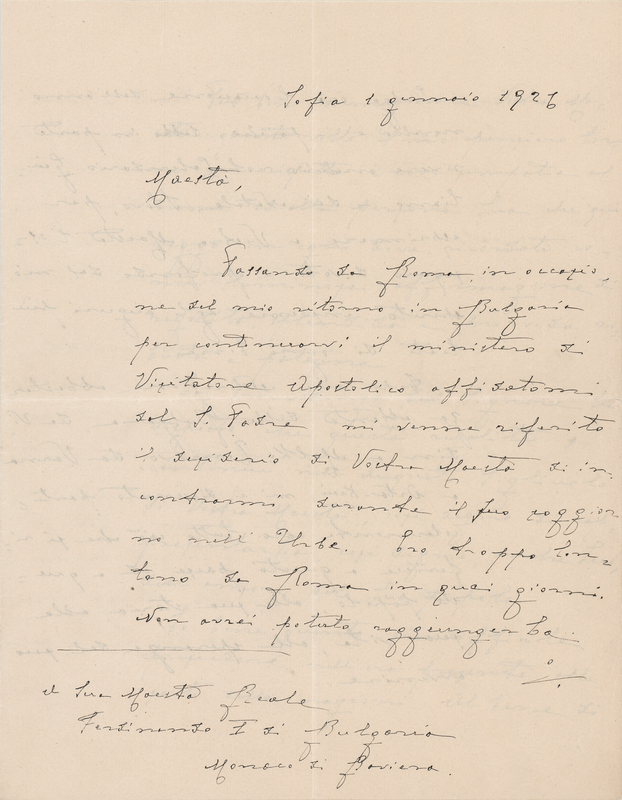 Sofia 1 gennaio 1926
Maestà,
Passando da Roma in occasio,
ne del mio ritorno in Bulgaria
per continuarvi il ministero di
Visitatore Apostolico affidatomi
dal S. Padre mi venne riferito
il desiderio di Vostra Maestà di in,
contrarmi durante il suo soggior,
no nell' Urbe. Ero troppo lon,
tano da Roma in quei giorni.
Non avrei potuto raggiungerLa.
A Sua Maestà Reale
Ferdinando I di Bulgaria
Monaco di Baviera.